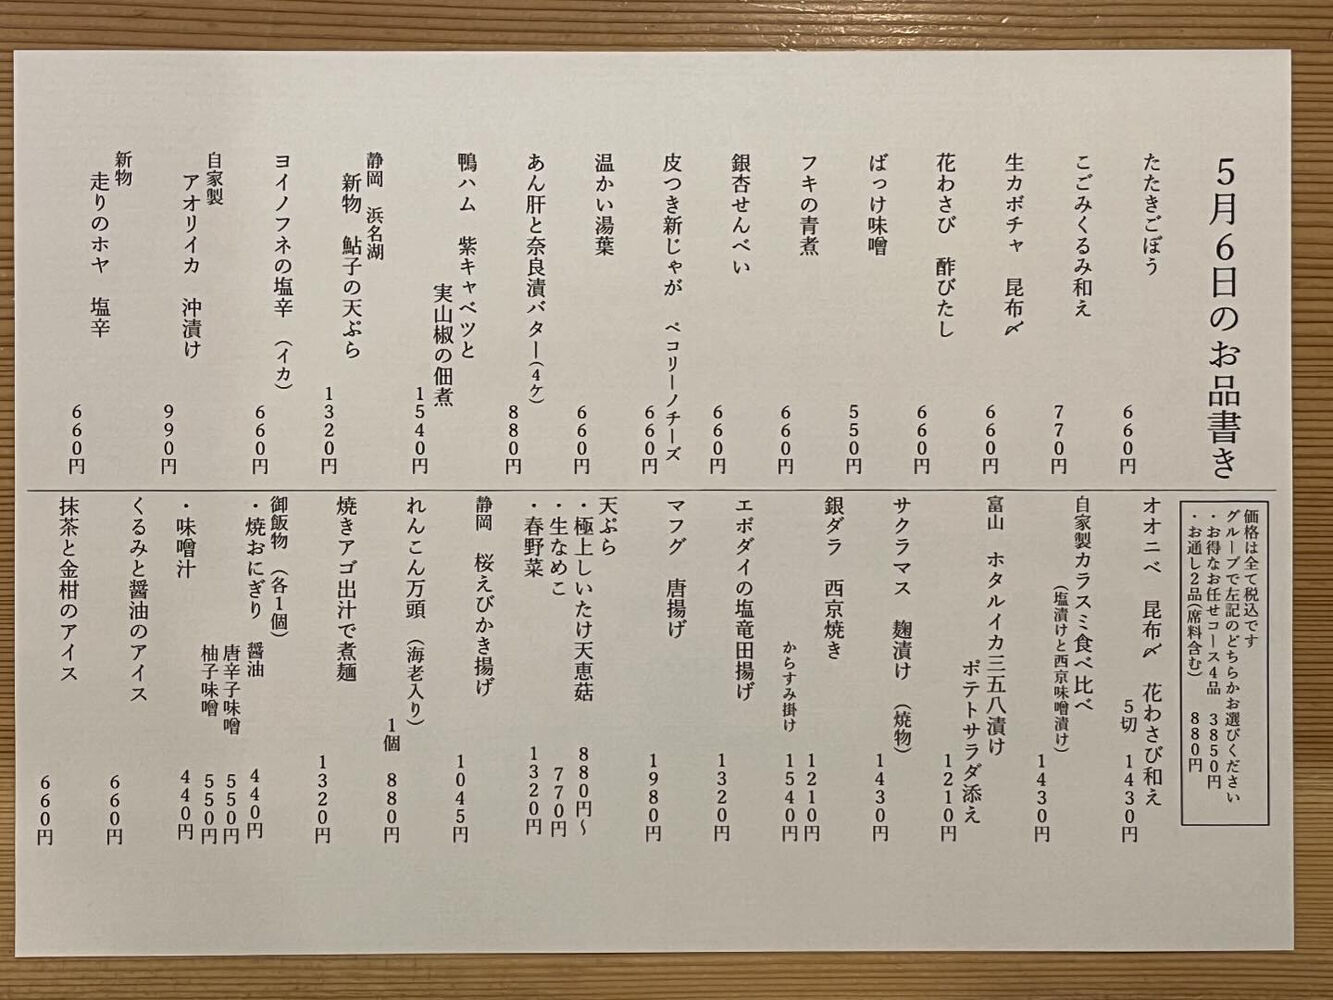 5月6日のお品書き
たたきごぼう
660円
こごみくるみ和え
770円
生カボチャ 昆布〆
660円
花わさび 酢びたし
660円
ばっけ味噌
550円
フキの青煮
660円
銀杏せんべい
660円
皮つき新じゃが ペコリーノチーズ
660円
温かい湯葉
660円
あん肝と奈良漬バター(4ケ)
880円
鴨ハム 紫キャベツと
実山椒の佃煮
1540円
静岡 浜名湖
新物 鮎子の天ぷら
1320円
ヨイノフネの塩辛 (イカ)
660円
自家製
アオリイカ 沖漬け
990円
新物
走りのホヤ 塩辛
660円
価格は全て税込です
グループで左記のどちらかお選びください
・お得なお任せコース4品 3850円
・お通し2品(席料含む) 880円
オオニベ 昆布〆 花わさび和え
5切 1430円
自家製カラスミ食べ比べ
(塩漬けと西京味噌漬け)
1430円
富山 ホタルイカ三五八漬け
ポテトサラダ添え
1210円
サクラマス 麹漬け (焼物)
1430円
銀ダラ 西京焼き
1210円
からすみ掛け 1540円
エボダイの塩竜田揚げ
1320円
マフグ 唐揚げ
1980円
天ぷら
・極上しいたけ天恵菇 880円〜
・生なめこ 770円
・春野菜 1320円
静岡 桜えびかき揚げ
1045円
れんこん万頭 (海老入り)
1個 880円
焼きアゴ出汁で煮麺
1320円
御飯物 (各1個)
・焼おにぎり 醤油 440円
唐辛子味噌 550円
柚子味噌 550円
・味噌汁 440円
くるみと醤油のアイス
660円
抹茶と金柑のアイス
660円